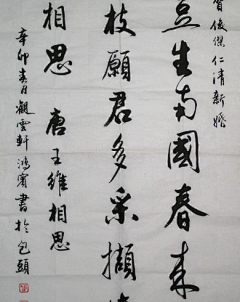 賀俊傑仁清新婚
豆生南國春來
枝願君多采擷
相思 唐王維相思
辛卯春月觀雲軒鴻賓書於包頭